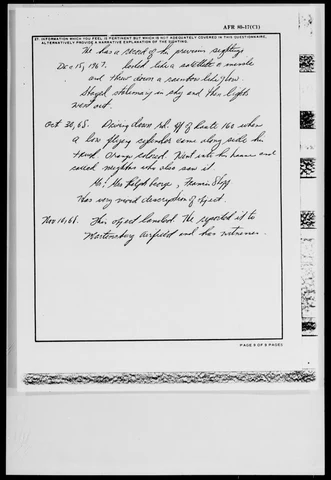 AFR 80-17(C1)
27. INFORMATION WHICH YOU FEEL IS PERTINENT BUT WHICH IS NOT ADEQUATELY COVERED IN THIS QUESTIONNAIRE,
ALTERNATIVELY PROVIDE A NARRATIVE EXPLANATION OF THE SIGHTING.
He has a record of his previous sightings
Dec. 15, 1967. Looked like a satellite or missile
and threw down a rainbow like glow.
Stayed stationary in sky and then lights
went out.
Oct 30, 68. Driving down rd. off of Route 160 when
a low flying cylinder came along side his
truck. Orange colored. Went into his house and
called neighbors who also saw it.
Mr. Mrs Ralph George, Francis
Has very good description of object.
Nov 16, 68. This object landed. He reported it to
Airfield and has witnesses.
PAGE 5 OF 5 PAGES